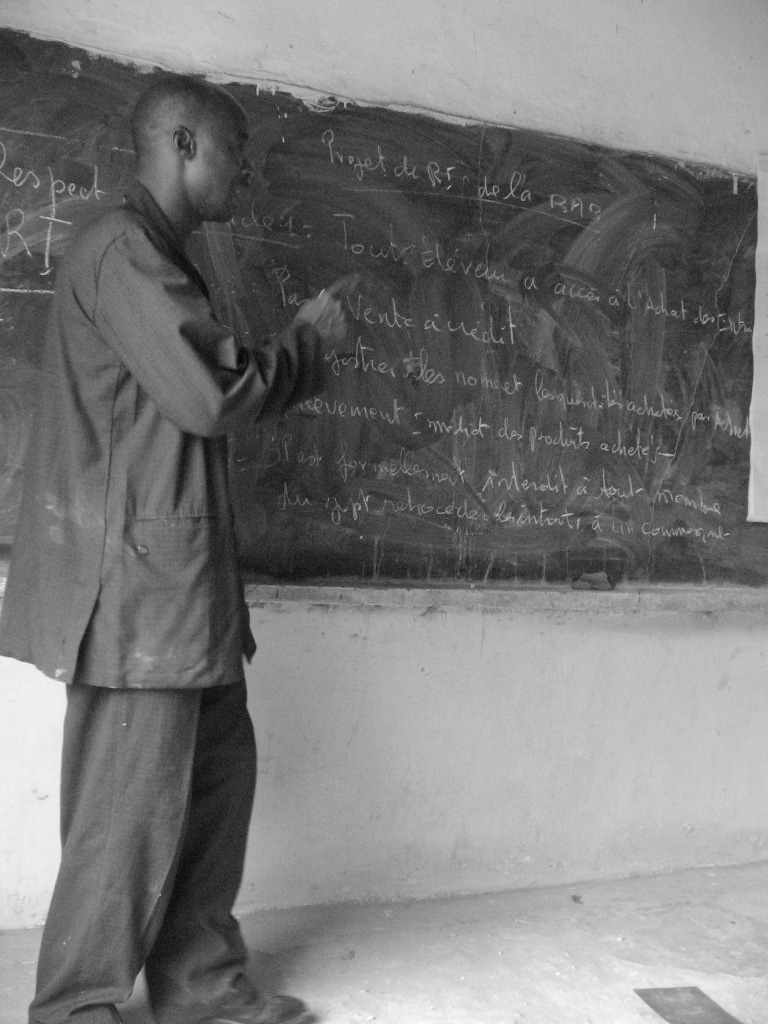 Respect
RI
Projet de RI de la BAB
Tout éléveur a accès à l'Achat des
Pas Vente à crédit
les noms et les quantités achetés par
nevement = motif des produits achetés
Il est formellement interdit à tout membre
du gpt retroceder les intants à un commerçant